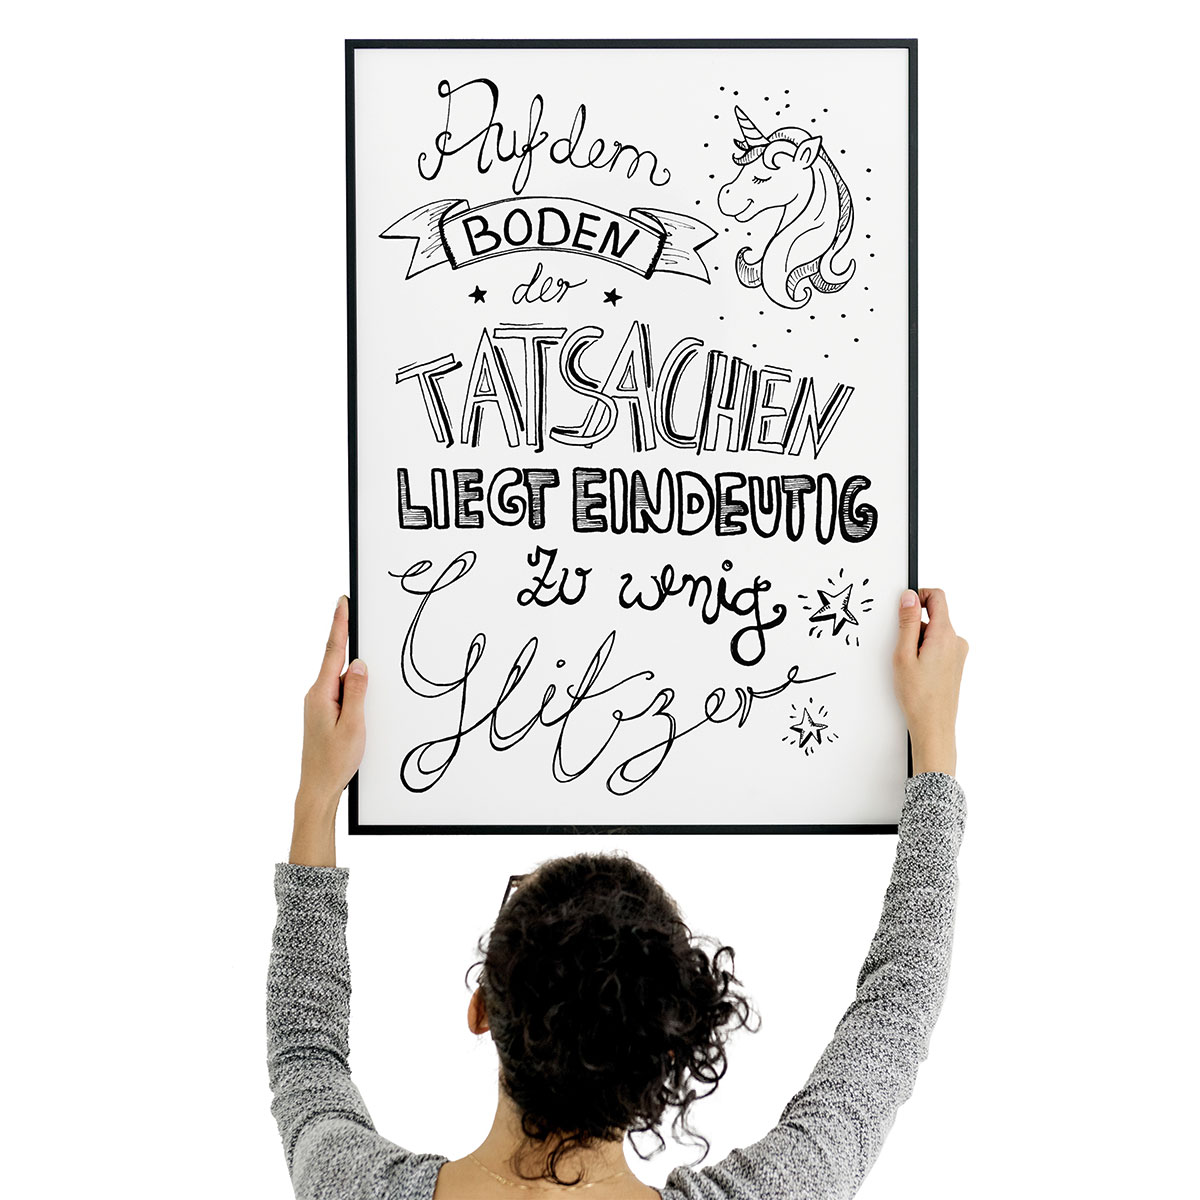 Auf dem
BODEN
der
TATSACHEN
LIEGT EINDEUTIG
zu wenig
Glitzer